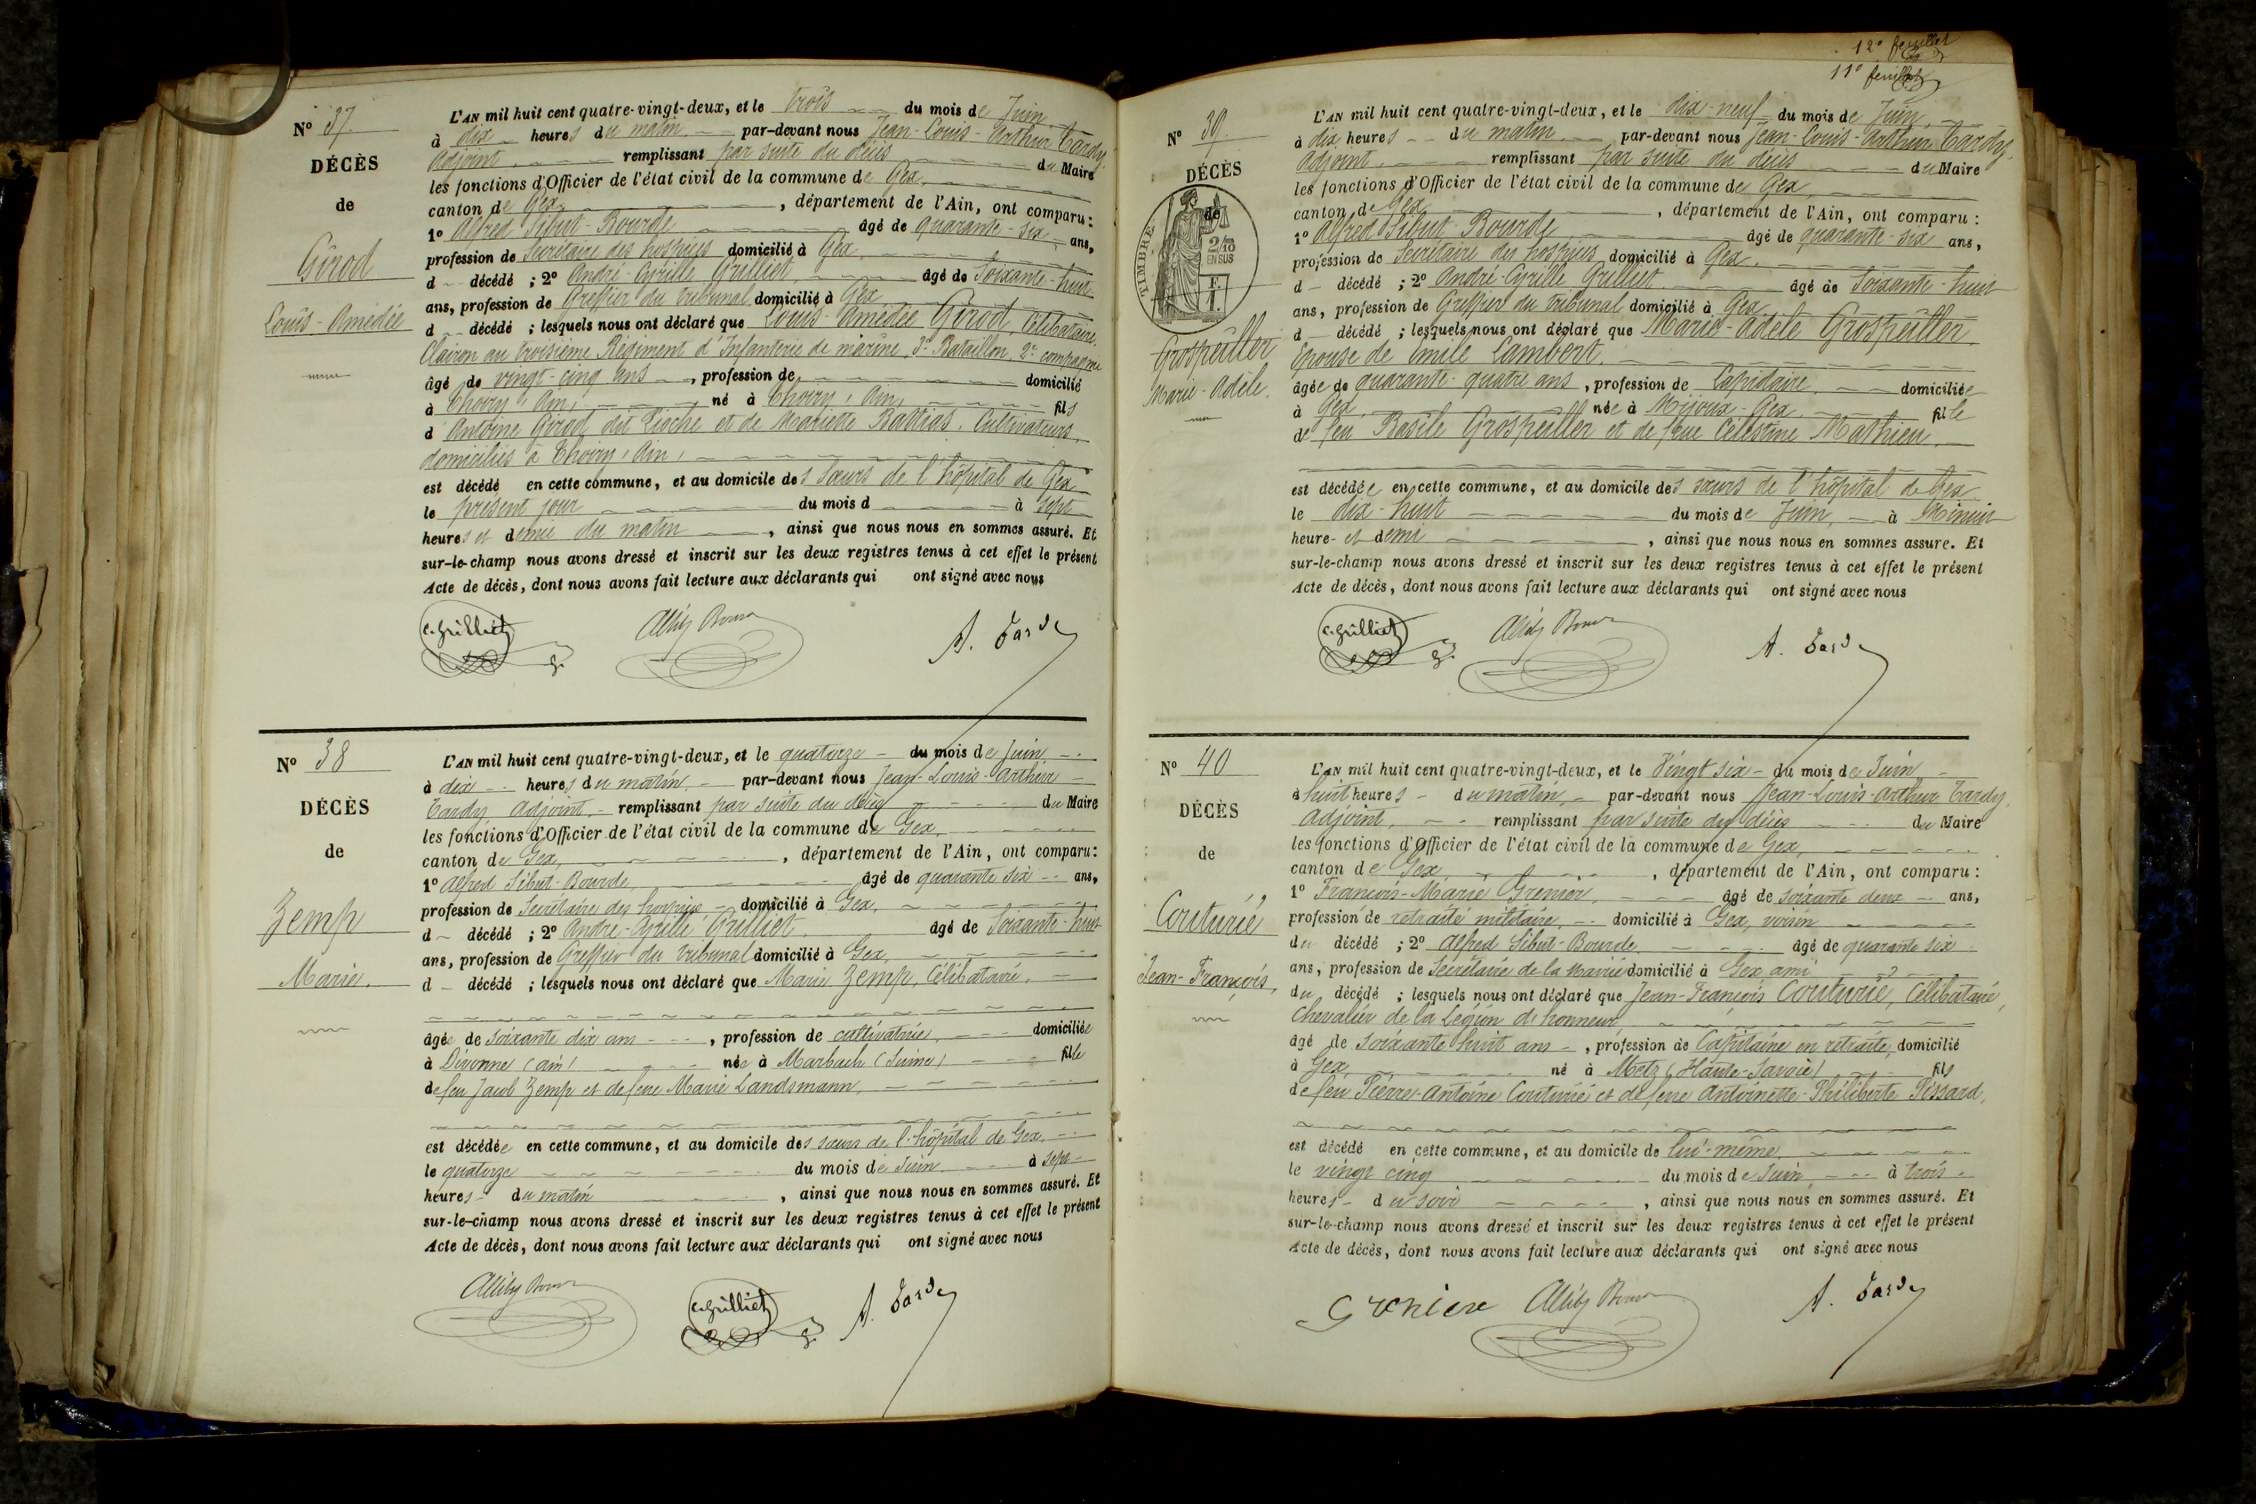 Nº 37
DÉCÈS
de
Girod
Louis-Amédée
L'AN mil huit cent quatre-vingt-deux, et le trois du mois de Juin
à dix heures du matin par-devant nous Jean-Louis-Arthur Tardy,
Adjoint, remplissant par suite du décès du Maire
les fonctions d'Officier de l'état civil de la commune de Gex,
canton de Gex, département de l'Ain, ont comparu:
1º Alfred Sibut-Bourde âgé de quarante-six ans,
profession de Secrétaire des hospices domicilié à Gex,
d décédé ; 2º André-Cyrille Grilliet âgé de Soixante-huit
ans, profession de Greffier du tribunal domicilié à Gex
d décédé ; lesquels nous ont déclaré que Louis-Amédée Girod, Célibataire,
Clairon au troisième Régiment d'Infanterie de marine, 3e Bataillon, 2e compagnie
âgé de vingt-cinq ans, profession de domicilié
à Thoiry (Ain) né à Thoiry (Ain) fils
d'Antoine Girod dit Pioché et de Mariette Battias, Cultivateurs,
domiciliés à Thoiry (Ain)
est décédé en cette commune, et au domicile des sœurs de l'hôpital de Gex
le présent jour du mois d à sept
heures et demie du matin, ainsi que nous nous en sommes assuré. Et
sur-le-champ nous avons dressé et inscrit sur les deux registres tenus à cet effet le présent
Acte de décès, dont nous avons fait lecture aux déclarants qui ont signé avec nous
C. Grilliet A. Tardy
Nº 38
DÉCÈS
de
Zemp
Marie.
L'AN mil huit cent quatre-vingt-deux, et le quatorze du mois de Juin
à dix heures du matin, par-devant nous Jean-Louis-Arthur
Tardy, Adjoint, remplissant par suite du décès du Maire
les fonctions d'Officier de l'état civil de la commune de Gex,
canton de Gex, département de l'Ain, ont comparu:
1º Alfred Sibut-Bourde, âgé de quarante six ans,
profession de Secrétaire des hospices domicilié à Gex,
d décédé ; 2º André-Cyrille Grilliet, âgé de Soixante-huit
ans, profession de Greffier du tribunal domicilié à Gex,
d décédé ; lesquels nous ont déclaré que Marie Zemp, Célibataire,
âgée de soixante dix ans, profession de cultivatrice, domiciliée
à Divonne (ain) née à Marbach (Suisse) fille
de feu Jacob Zemp et de feue Marie Landsmann,
est décédée en cette commune, et au domicile des sœurs de l'hôpital de Gex,
le quatorze du mois de Juin à sept
heures du matin, ainsi que nous nous en sommes assuré. Et
sur-le-champ nous avons dressé et inscrit sur les deux registres tenus à cet effet le présent
Acte de décès, dont nous avons fait lecture aux déclarants qui ont signé avec nous
C. Grilliet A. Tardy
12e feuillet
11e feuillet
Nº 39
DÉCÈS
de
TIMBRE
2/10
EN SUS
Grospeiller
Marie-Adèle.
L'AN mil huit cent quatre-vingt-deux, et le dix-neuf du mois de Juin,
à dix heures du matin par-devant nous Jean-Louis-Arthur Tardy,
Adjoint, remplissant par suite du décès du Maire
les fonctions d'Officier de l'état civil de la commune de Gex
canton de Gex, département de l'Ain, ont comparu:
1º Alfred Sibut-Bourde âgé de quarante-six ans,
profession de Secrétaire des hospices domicilié à Gex,
d décédé ; 2º André-Cyrille Grilliet, âgé de Soixante-huit
ans, profession de Greffier du tribunal domicilié à Gex
d décédé ; lesquels nous ont déclaré que Marie-Adèle Grospeiller,
Epouse de Emile Lambert,
âgée de quarante-quatre ans, profession de Lapidaire domiciliée
à Gex, née à Mijoux-Gex, fille
de feu Basile Grospeiller et de feue Célestine Mathieu,
est décédée en cette commune, et au domicile des sœurs de l'hôpital de Gex
le dix-huit du mois de Juin, à Minuit
heure et demi, ainsi que nous nous en sommes assuré. Et
sur-le-champ nous avons dressé et inscrit sur les deux registres tenus à cet effet le présent
Acte de décès, dont nous avons fait lecture aux déclarants qui ont signé avec nous
C. Grilliet A. Tardy
Nº 40
DÉCÈS
de
Couturié
Jean-François,
L'AN mil huit cent quatre-vingt-deux, et le Vingt six du mois de Juin
à huit heures du matin, par-devant nous Jean-Louis-Arthur Tardy,
Adjoint, remplissant par suite du décès du Maire
les fonctions d'Officier de l'état civil de la commune de Gex,
canton de Gex, département de l'Ain, ont comparu:
1º François-Marie Grenier, âgé de soixante deux ans,
profession de retraité militaire, domicilié à Gex, voisin
du décédé ; 2º Alfred Sibut-Bourde, âgé de quarante six
ans, profession de Secrétaire de la Mairie domicilié à Gex ami
du décédé ; lesquels nous ont déclaré que Jean-François Couturié, Célibataire,
Chevalier de la Légion d'honneur,
âgé de soixante huit ans, profession de Capitaine en retraite, domicilié
à Gex, né à Metz (Haute-Savoie) fils
de feu Pierre-Antoine Couturié et de feue Antoinette-Philiberte Pissard,
est décédé en cette commune, et au domicile de lui-même,
le vingt cinq du mois de Juin, à trois
heures du soir, ainsi que nous nous en sommes assuré. Et
sur-le-champ nous avons dressé et inscrit sur les deux registres tenus à cet effet le présent
Acte de décès, dont nous avons fait lecture aux déclarants qui ont signé avec nous
Grenier A. Tardy